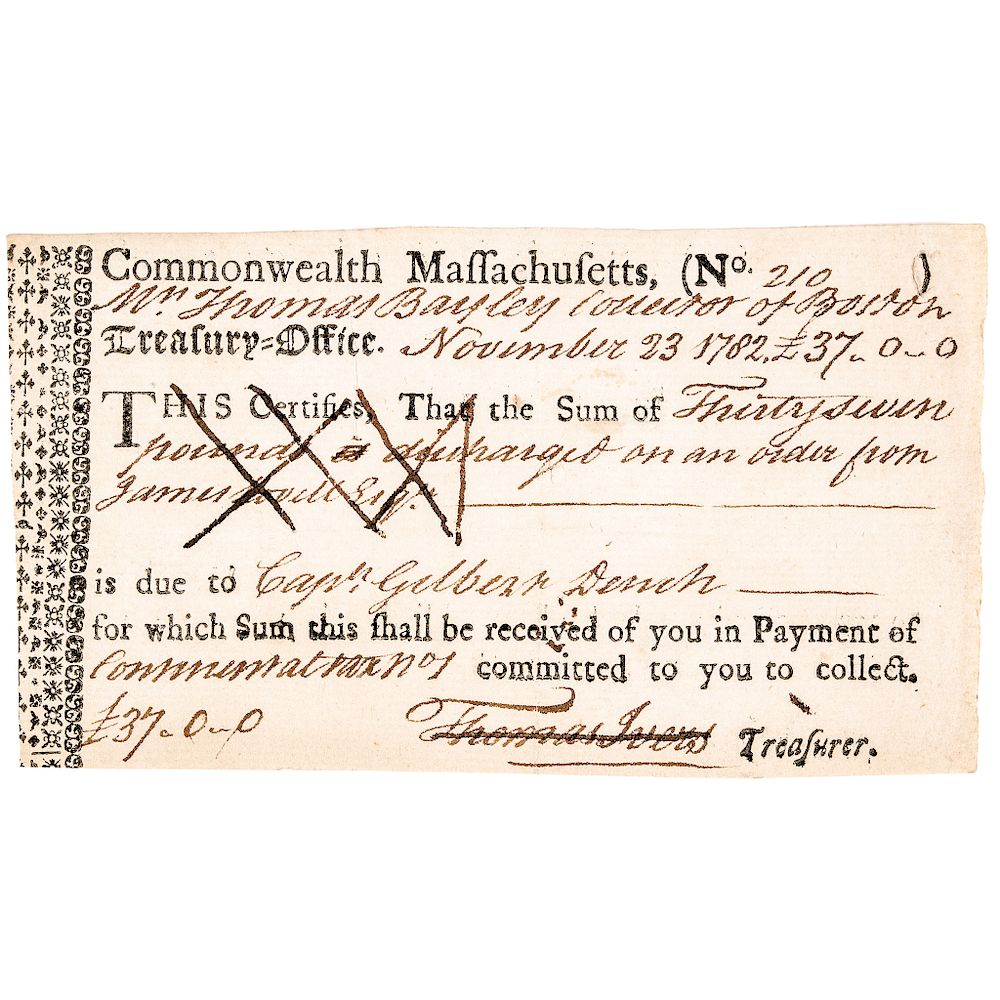 Commonwealth Maſſachuſetts, (No. 210 )
Mr. Thomas Bayley Collector of Boston
Treaſury-Office. November 23 1782. £37-0-0
THIS Certifies, That the Sum of Thirty seven
pounds is discharged on an order from
James Esqr.
is due to Capt. Gilbert Dench
for which Sum this ſhall be received of you in Payment of
Continental tax No 1 committed to you to collect.
£37-0-0 Thomas Ivers Treaſurer.